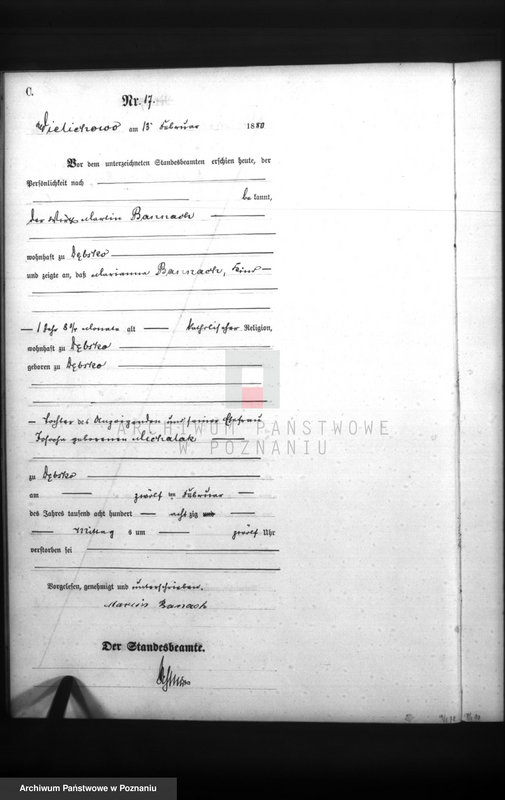 C.
Nr. 17.
Wielichowo am 13 Februar 1880
Vor dem unterzeichneten Standesbeamten erschien heute, der
Persönlichkeit nach
bekannt,
der Wirth Martin Bannach
wohnhaft zu Dębsko
und zeigte an, daß Marianna Bannach, Kind
1 Jahr 8 Monate alt katholischer Religion,
wohnhaft zu Dębsko
geboren zu Dębsko
Tochter des Anzeigenden und seiner Ehefrau
geborenen Michalak
ARCHIWUM PAŃSTWOWE
W POZNANIU
zu Dębsko
am zwölf ten Februar
des Jahres tausend acht hundert acht zig und
Mittag s um zwölf Uhr
verstorben sei
Vorgelesen, genehmigt und unterschrieben.
Marcin Banach
Der Standesbeamte.
Archiwum Państwowe w Poznaniu